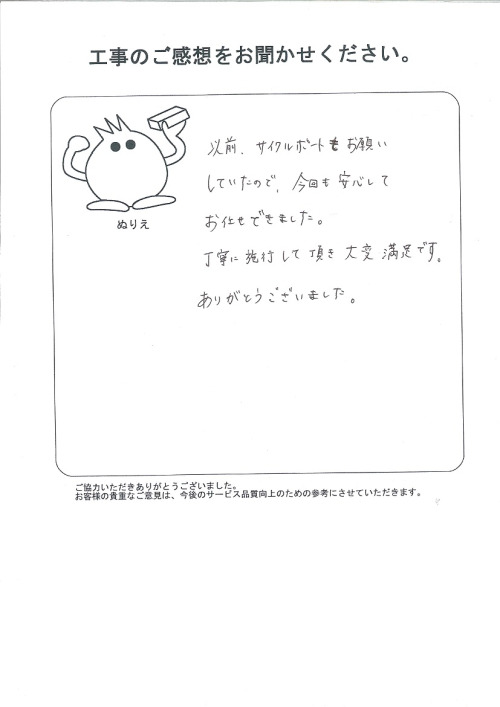 工事のご感想をお聞かせください。
以前、サイクルポートもお願い
していたので、今回も安心して
お任せできました。
丁寧に施行して頂き大変満足です。
ありがとうございました。
ぬりえ
ご協力いただきありがとうございました。
お客様の貴重なご意見は、今後のサービス品質向上のための参考にさせていただきます。